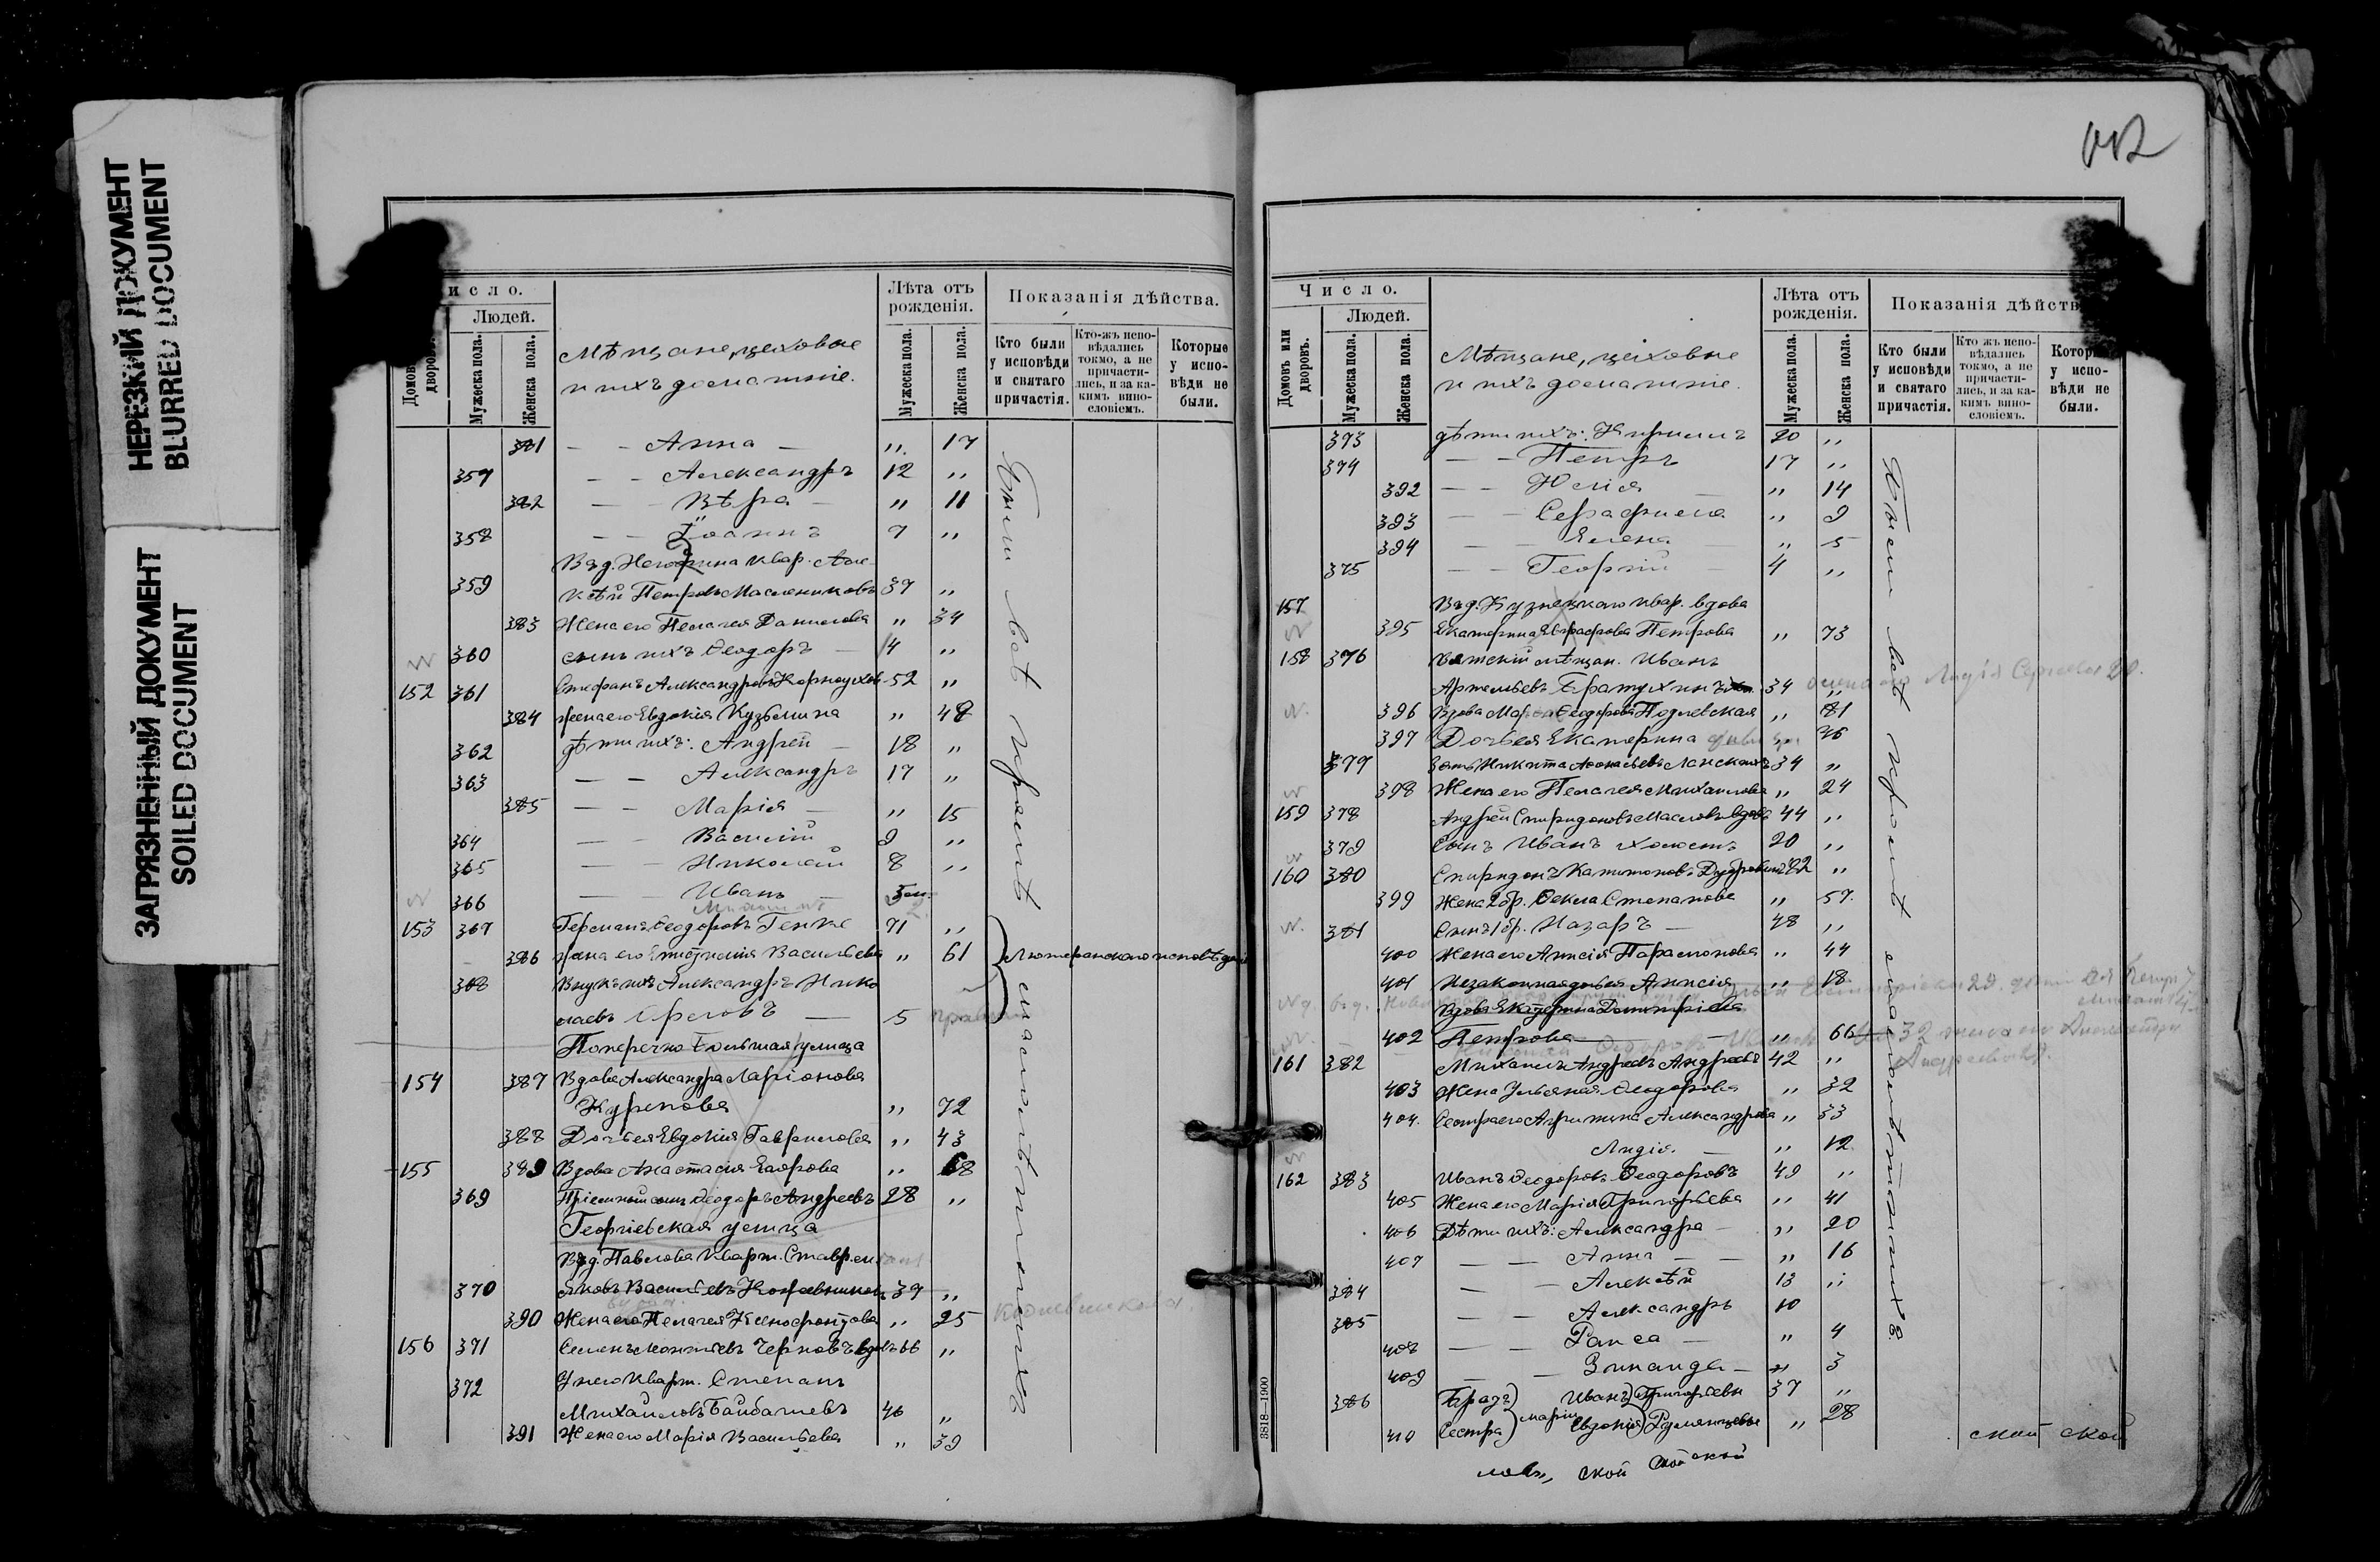 НЕРЕЗКИЙ ДОКУМЕНТ
BLURRED DOCUMENT
ЗАГРЯЗНЕННЫЙ ДОКУМЕНТ
SOILED DOCUMENT
исло.
Людей.
Мужеска пола.
Женска пола.
Мѣщане, цеховые
и ихъ домашніе.
Лѣта отъ
рожденія.
Мужеска пола.
Женска пола.
Показанія дѣйства.
Кто были
у исповѣди
и святаго
причастія.
Кто-жъ испо-
вѣдались
токмо, а не
причасти-
лись, и за ка-
кимъ вино-
словіемъ.
Которые
у испо-
вѣди не
были.
381 — — Анна — „ 17
357 — — Александръ 12 „
382 — — Вѣра — „ 11
358 — — Іоаннъ 7 „
359 Петровъ Маслениковъ 37 „
383 Жена его Пелагея Данилова „ 34
360 сынъ ихъ Ѳеодоръ — 14 „
152 361 Стефанъ Александровъ Корноуховъ 52 „
384 жена его Евдокія Кузьмина „ 48
362 дѣти ихъ: Андрей — 18 „
363 — — Александръ 17 „
385 — — Марія — „ 15
364 — — Василій 9 „
365 — — Николай 8 „
366 — — Иванъ —
153 367 Германъ Ѳеодоровъ Генке 71 „
386 жена его Васильева „ 61 Лютеранскаго исповѣданія
368 Внукъ ихъ Александръ Нико
лаевъ Орловъ — 5
Поперечно Большая улица
154 387 Вдова Александра Ларіонова
Куренова „ 72
388 Дочь ея Евдокія Гаврилова „ 43
155 389 Вдова Анастасія Егорова „ 68
369 Пріемный сынъ Ѳеодоръ Андреевъ 28 „
Георгіевская улица
370 Яковъ Васильевъ Кожевниковъ 39 „
390 Жена его Пелагея Ксенофонтова „ 25
156 371 Семенъ Леонтьевъ Черновъ вдовъ 66 „
372 У него кварт. Степанъ
Михайловъ Байбачевъ 46 „
391 Жена его Марія Васильева „ 39
112
Число.
Домовъ или
дворовъ.
Людей.
Мужеска пола.
Женска пола.
Мѣщане, цеховые
и ихъ домашніе.
Лѣта отъ
рожденія.
Мужеска пола.
Женска пола.
Показанія дѣйств
Кто были
у исповѣди
и святаго
причастія.
Кто жъ испо-
вѣдались
токмо, а не
причасти-
лись, и за ка-
кимъ вино-
словіемъ.
Котор
у испо-
вѣди не
были.
373 дѣти ихъ: Кириллъ 20 „
374 — — Петръ 17 „
392 — — Юлія — „ 14
393 — — Серафима „ 9
394 — — Елена — „ 5
375 — — Георгій — 4 „
157 Вяд. Кузнецкаго квар. вдова
395 Екатерина Евграфова Петрова „ 73
158 376 Вятскій мѣщан. Иванъ
Артемьевъ Братухинъ 34 „
396 Вдова Ѳеодорова Подлевская „ 81
397 Дочь ея Екатерина „ 46
377 Зять Никита Аѳонасьевъ 34 „
398 Жена его Пелагея Михайлова „ 24
159 378 Андрей Спиридоновъ Масловъ вдовъ 44 „
379 Сынъ Иванъ холостъ 20 „
160 380 Спиридонъ Капитоновъ 82 „
399 Жена 2 бр. Ѳекла Степанова „ 57.
381 Сынъ 1 бр. Назаръ — 48 „
400 Жена его Анисія Парамонова „ 44
401 Незаконная дочь Анисія „ 18
Вдова Екатерина Димитріева
402 Петрова — „ 66
161 382 Михаилъ Андреевъ Андреевъ 42 „
403 Жена Ульяна Ѳеодорова „ 32
404. Сестра его Александрова „ 33
Лидія. — „ 12.
162 383 Иванъ Ѳеодоровъ Ѳеодоровъ 49 „
405 Жена его Марія Григорьева „ 41
406 Дѣти ихъ: Александра — „ 20
407 — — Анна — — „ 16
384 — — Алексѣй 13 „
385 — — Александръ 10
408 — — Раиса — „ 4
409 — — Зинаида — „ 3
386 Братъ Иванъ Григорьевы 37 „
410 Сестра Маріи Евдокія Румянцевы „ 28
3818—1900
ской ской
ской ской ской